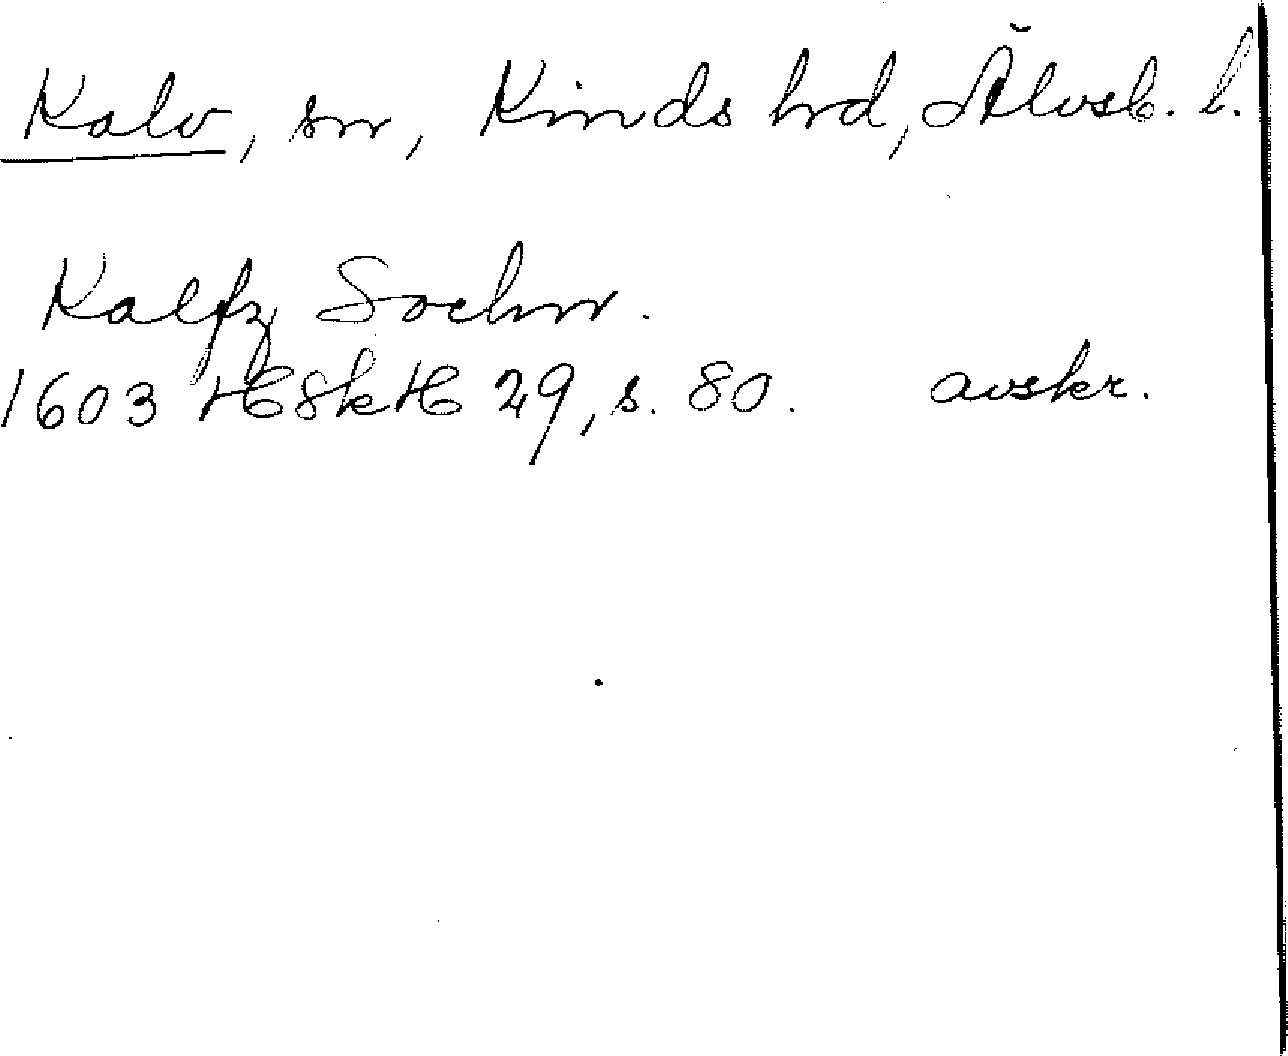 Kalv, sn, Kinds hrd, Älvsb. l.
Kalfz Sochn.
1603 HSkH 29, s. 80. avskr.